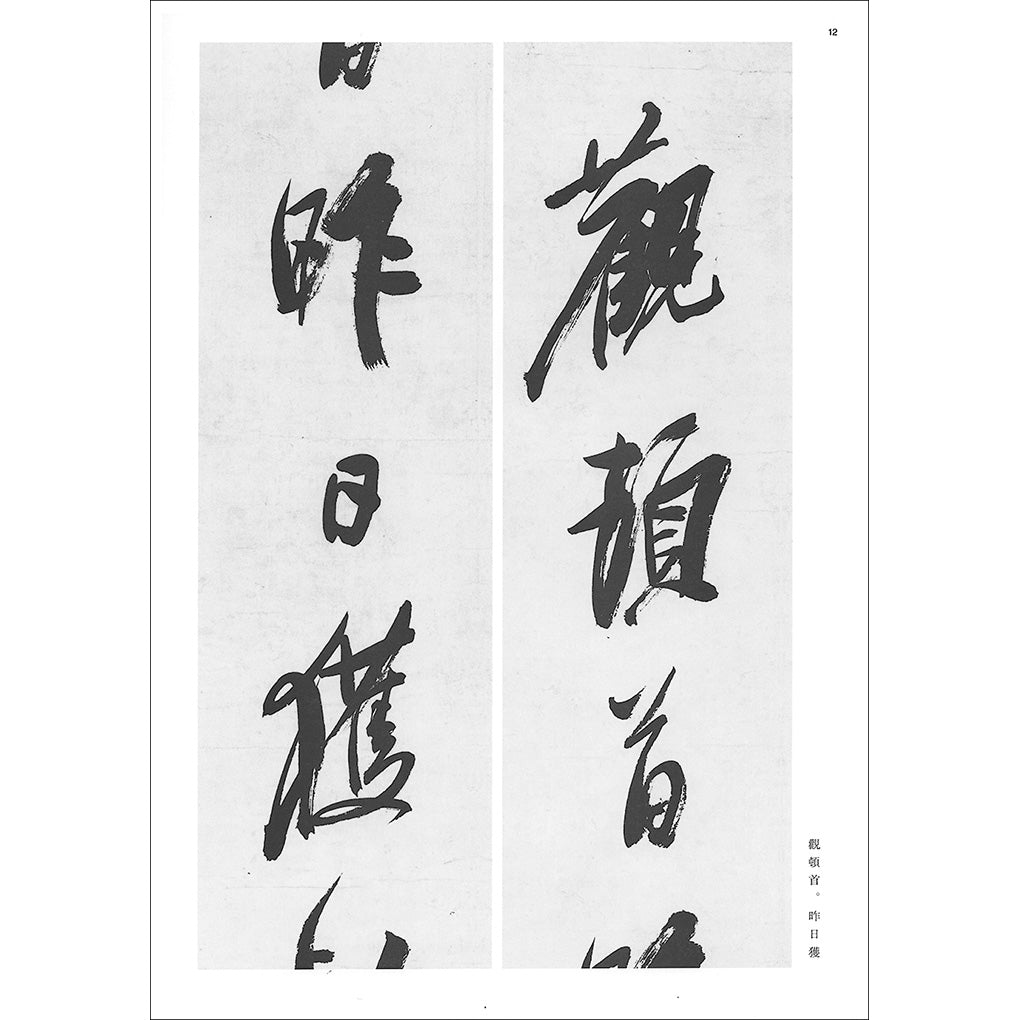 12
觀頓首
昨日獲
觀頓首。昨日獲